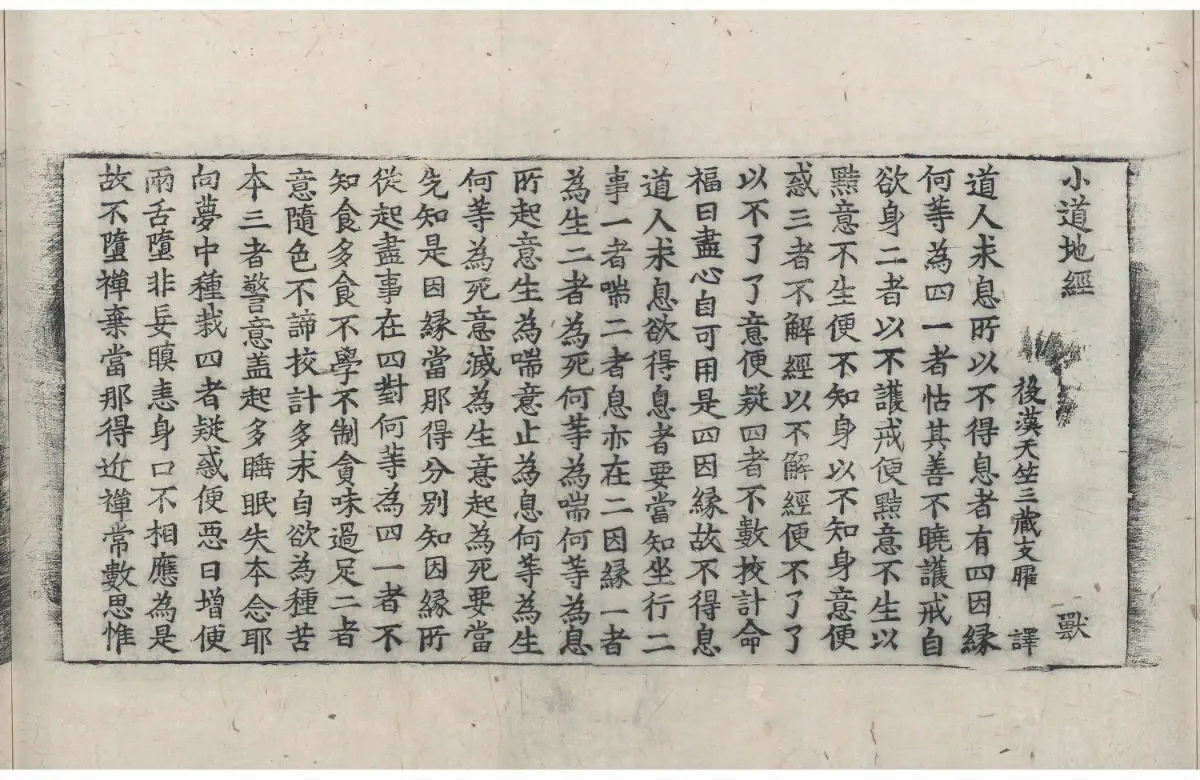 小道地經 獸
後漢天竺三藏支曜 譯
道人求息所以不得息者有四因緣
何等為四一者怙其善不曉護戒自
欲身二者以不護戒便黠意不生以
黠意不生便不知身以不知身意便
惑三者不解經以不解經便不了了
以不了了意便疑四者不數挍計命
福日盡心自可用是四因緣故不得息
道人求息欲得息者要當知坐行二
事一者喘二者息亦在二因緣一者
為生二者為死何等為喘何等為息
所起意生為喘意止為息何等為生
何等為死意滅為生意起為死要當
先知是因緣當那得分別知因緣所
從起盡事在四對何等為四一者不
知食多食不學不制貪味過足二者
意隨色不諦挍計多求自欲為種苦
本三者瞥意盖起多睡眠失本念耶
向夢中種栽四者疑惑便惡日增使
兩舌墮非妄瞋恚身口不相應為是
故不墮禪棄當那得近禪常數思惟